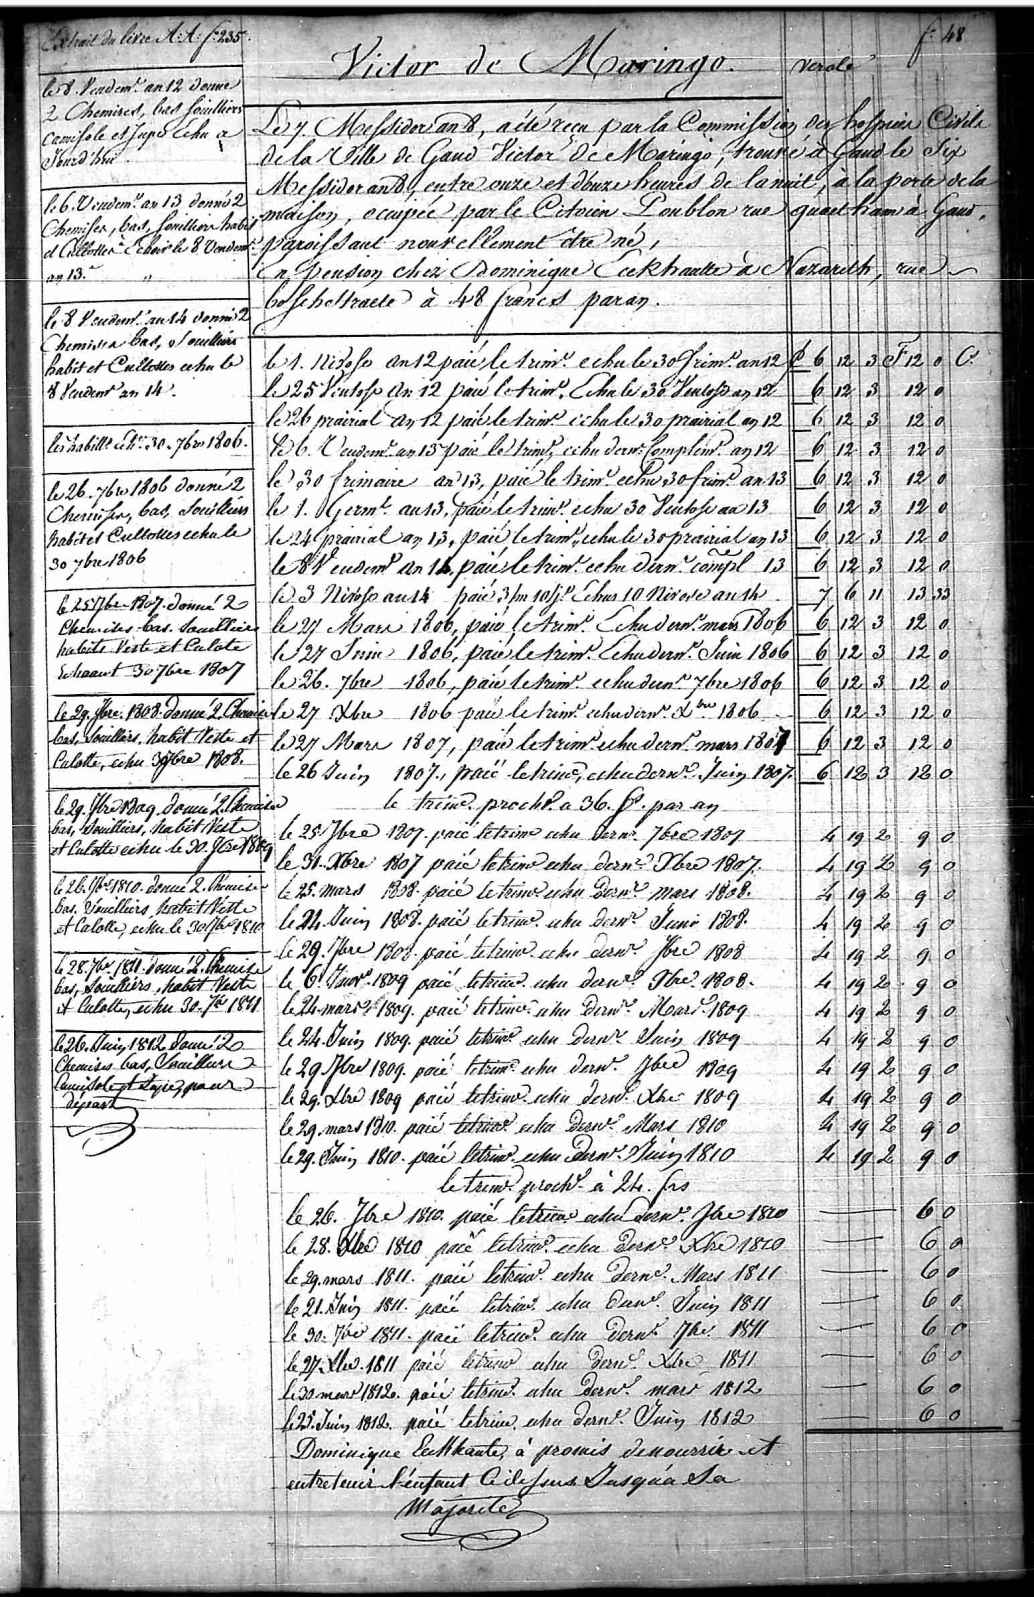 Extrait du livre A: A: f: 235.
f. 48
Victor de Maringo.
Verolé
Le 7. Messidor an 8, a été reçu par la Commission des hospices Civils
de la Ville de Gand Victor de Maringo, trouvé à Gand le Six
Messidor an 8, entre onze et douze heures de la nuit, à la porte de la
maison, occupée par le Citoien Poublon rue quaetham à Gand,
paroissant nouvellement être né,
En pension chez Dominique Eeckhautte à Nazareth, rue
boschstraete à 48 francs par an.
le 8 Vendem.r an 12 donné
2 Chemises, bas souilliers
Camisole et Jupe echu a
Jourd'hui
le 6. Vendem.r an 13 donné 2
Chemises, bas, souilliers habit
et Cullottes Echus le 8 Vendem.r
an 13. "
le 8 Vendem.r an 14 donné 2
Chemises bas, souilliers
habit et Cullottes echu le
8 Vendem.r an 14.
les habill.ts 30. 7bre 1806.
le 26. 7bre 1806 donné 2
Chemises, bas, souilliers
habit et Cullottes echu le
30 7bre 1806
le 25 7bre 1807. donné 2
Chemises bas. souilliers
habits Veste et Culote
Echeant 30 7bre 1807
le 29. 7bre. 1808 donné 2. Chemises
bas, souilliers, habit Veste et
Culotte, echu 30 7bre 1808.
le 29. 7bre 1809 donné 2. Chemises
bas, souilliers, habit Veste
et Culotte echu le 30. 7bre 1809
le 26. 7bre 1810. donné 2. Chemises
bas. souilliers, habit Veste
et Culotte, echu le 30 7bre 1810
le 28. 7bre 1811. donné 2. Chemises
bas, souilliers, habit Veste
et Culotte, echu 30. 7bre 1811
le 26. Juin 1812 donné 2
Chemises bas, souilliers
Camisole et Jupe, pour
départ
le 1. Nivose an 12 paié le trim.e echu le 30 frim.e an 12 £ 6 12 3 F 12 0 C.
le 25 Ventose an 12 paié le trim.e Echu le 30 Ventose an 12 6 12 3 12 0
le 26 prairial an 12 paié le trim.e echu le 30 prairial an 12 6 12 3 12 0
le 6. Vendem.r an 13 paié le trim.e echu dern.r Complém.r an 12 6 12 3 12 0
le 30 frimaire an 13, paié le trim.e echu 30 frim.e an 13 6 12 3 12 0
le 1. Germ.l an 13, paié le trim.e echu 30 Ventose an 13 6 12 3 12 0
le 24 prairial an 13, paié le trim.e echu le 30 prairial an 13 6 12 3 12 0
le 8 Vendem.r an 14, paié le trim.e echu dern.r compl 13 6 12 3 12 0
le 3 Nivose an 14 paié 3/m 10/j.s Echus 10 Nivose an 14 7 6 11 13 33
le 27 Mars 1806, paié le trim.e Echu dern.r mars 1806 6 12 3 12 0
le 27 Juin 1806, paié le trim.e Echu dern.r Juin 1806 6 12 3 12 0
le 26. 7bre 1806, paié le trim.e echu dern.r 7bre 1806 6 12 3 12 0
le 27 Xbre 1806 paié le trim.e echu dern.r Xbre 1806 6 12 3 12 0
le 27 Mars 1807, paié le trim.e echu dern.r mars 1807 6 12 3 12 0
le 26 Juin 1807., paié le trim.e, echu dern.r Juin 1807. 6 12 3 12 0
le trim.e proch.n a 36. f.s par an
le 25 7bre 1807. paié le trim.e echu dern.r 7bre 1807 4 19 2 9 0
le 31. Xbre 1807 paié le trim.e echu dern.r Xbre 1807. 4 19 2 9 0
le 25. mars 1808. paié le trim.e echu dern.r mars 1808. 4 19 2 9 0
le 24 Juin 1808. paié le trim.e echu dern.r Juin 1808. 4 19 2 9 0
le 29. 7bre 1808. paié le trim.e echu dern.r 7bre 1808 4 19 2 9 0
le 6. Janv.r 1809 paié le trim.e echu dern.r Xbre. 1808. 4 19 2 9 0
le 24. mars 1809. paié le trim.e echu dern.r Mars. 1809 4 19 2 9 0
le 24 Juin 1809. paié le trim.e echu dern.r Juin 1809 4 19 2 9 0
le 29 7bre 1809. paié le trim.e echu dern.r 7bre 1809 4 19 2 9 0
le 29. Xbre 1809 paié le trim.e echu dern.r Xbre 1809 4 19 2 9 0
le 29. mars 1810. paié le trim.e echu dern.r Mars 1810 4 19 2 9 0
le 29. Juin 1810. paié le trim.e echu dern.r Juin 1810 4 19 2 9 0
le trim.e proch.n à 24. frs
le 26. 7bre 1810. paié le trim.e echu dern.r 7bre 1810 6 0
le 28. Xbre 1810 paié le trim.e echu dern.r Xbre 1810 6 0
le 29. mars 1811. paié le trim.e echu dern.r Mars 1811 6 0
le 21. Juin 1811. paié le trim.e echu dern.r Juin 1811 6 0
le 30. 7bre 1811. paié le trim.e echu dern.r 7bre. 1811 6 0
le 27. Xbre. 1811 paié le trim.e echu dern.r Xbre 1811 6 0
le 30 mars 1812. paié le trim.e echu dern.r mars 1812 6 0
le 25. Juin 1812. paié le trim.e echu dern.r Juin 1812 6 0
Dominique Eeckhaute, à promis de nourrir et
entretenir l'enfant Cidessus Jusqu'a Sa
Majorité